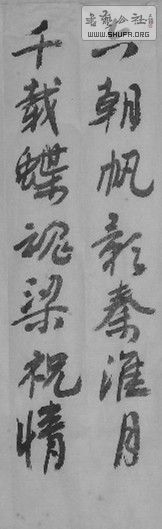 书艺公社
WWW.SHUFA.ORG
六朝帆影秦淮月
千载蝶魂梁祝情